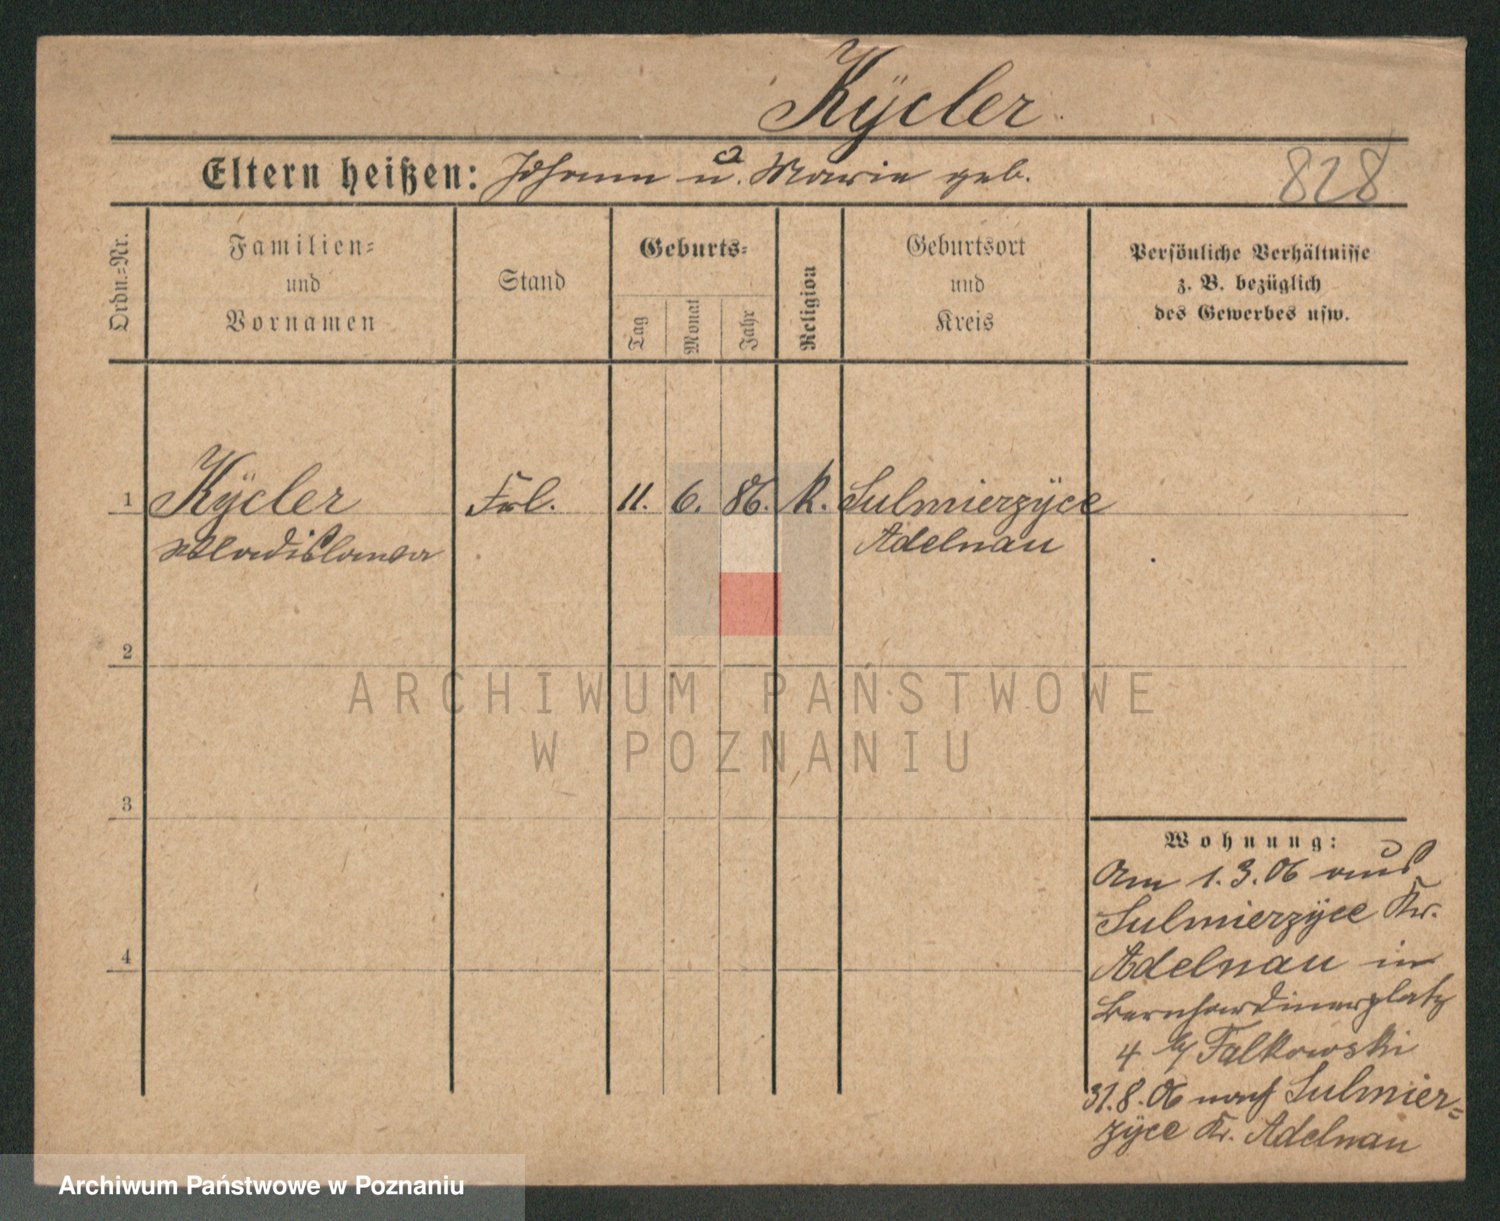 Kÿcler
Eltern heißen: Johann u. Marie geb.
828
Ordn.=Nr.
Familien=
und
Vornamen
Stand
Geburts=
Tag
Monat
Jahr
Religion
Geburtsort
und
Kreis
Persönliche Verhältnisse
z. B. bezüglich
des Gewerbes usw.
1 Kÿcler Frl. 11. 6. 86. k. Sulmierzÿce
Wladislawa Adelnau
2
3
4
Wohnung:
Am 1.3.06 aus
Sulmierzÿce Kr.
Adelnau in
Bernhardinerplatz
4 b/ Falkowski
31.8.06 nach Sulmier=
zÿce Kr. Adelnau
ARCHIWUM PAŃSTWOWE
W POZNANIU
Archiwum Państwowe w Poznaniu